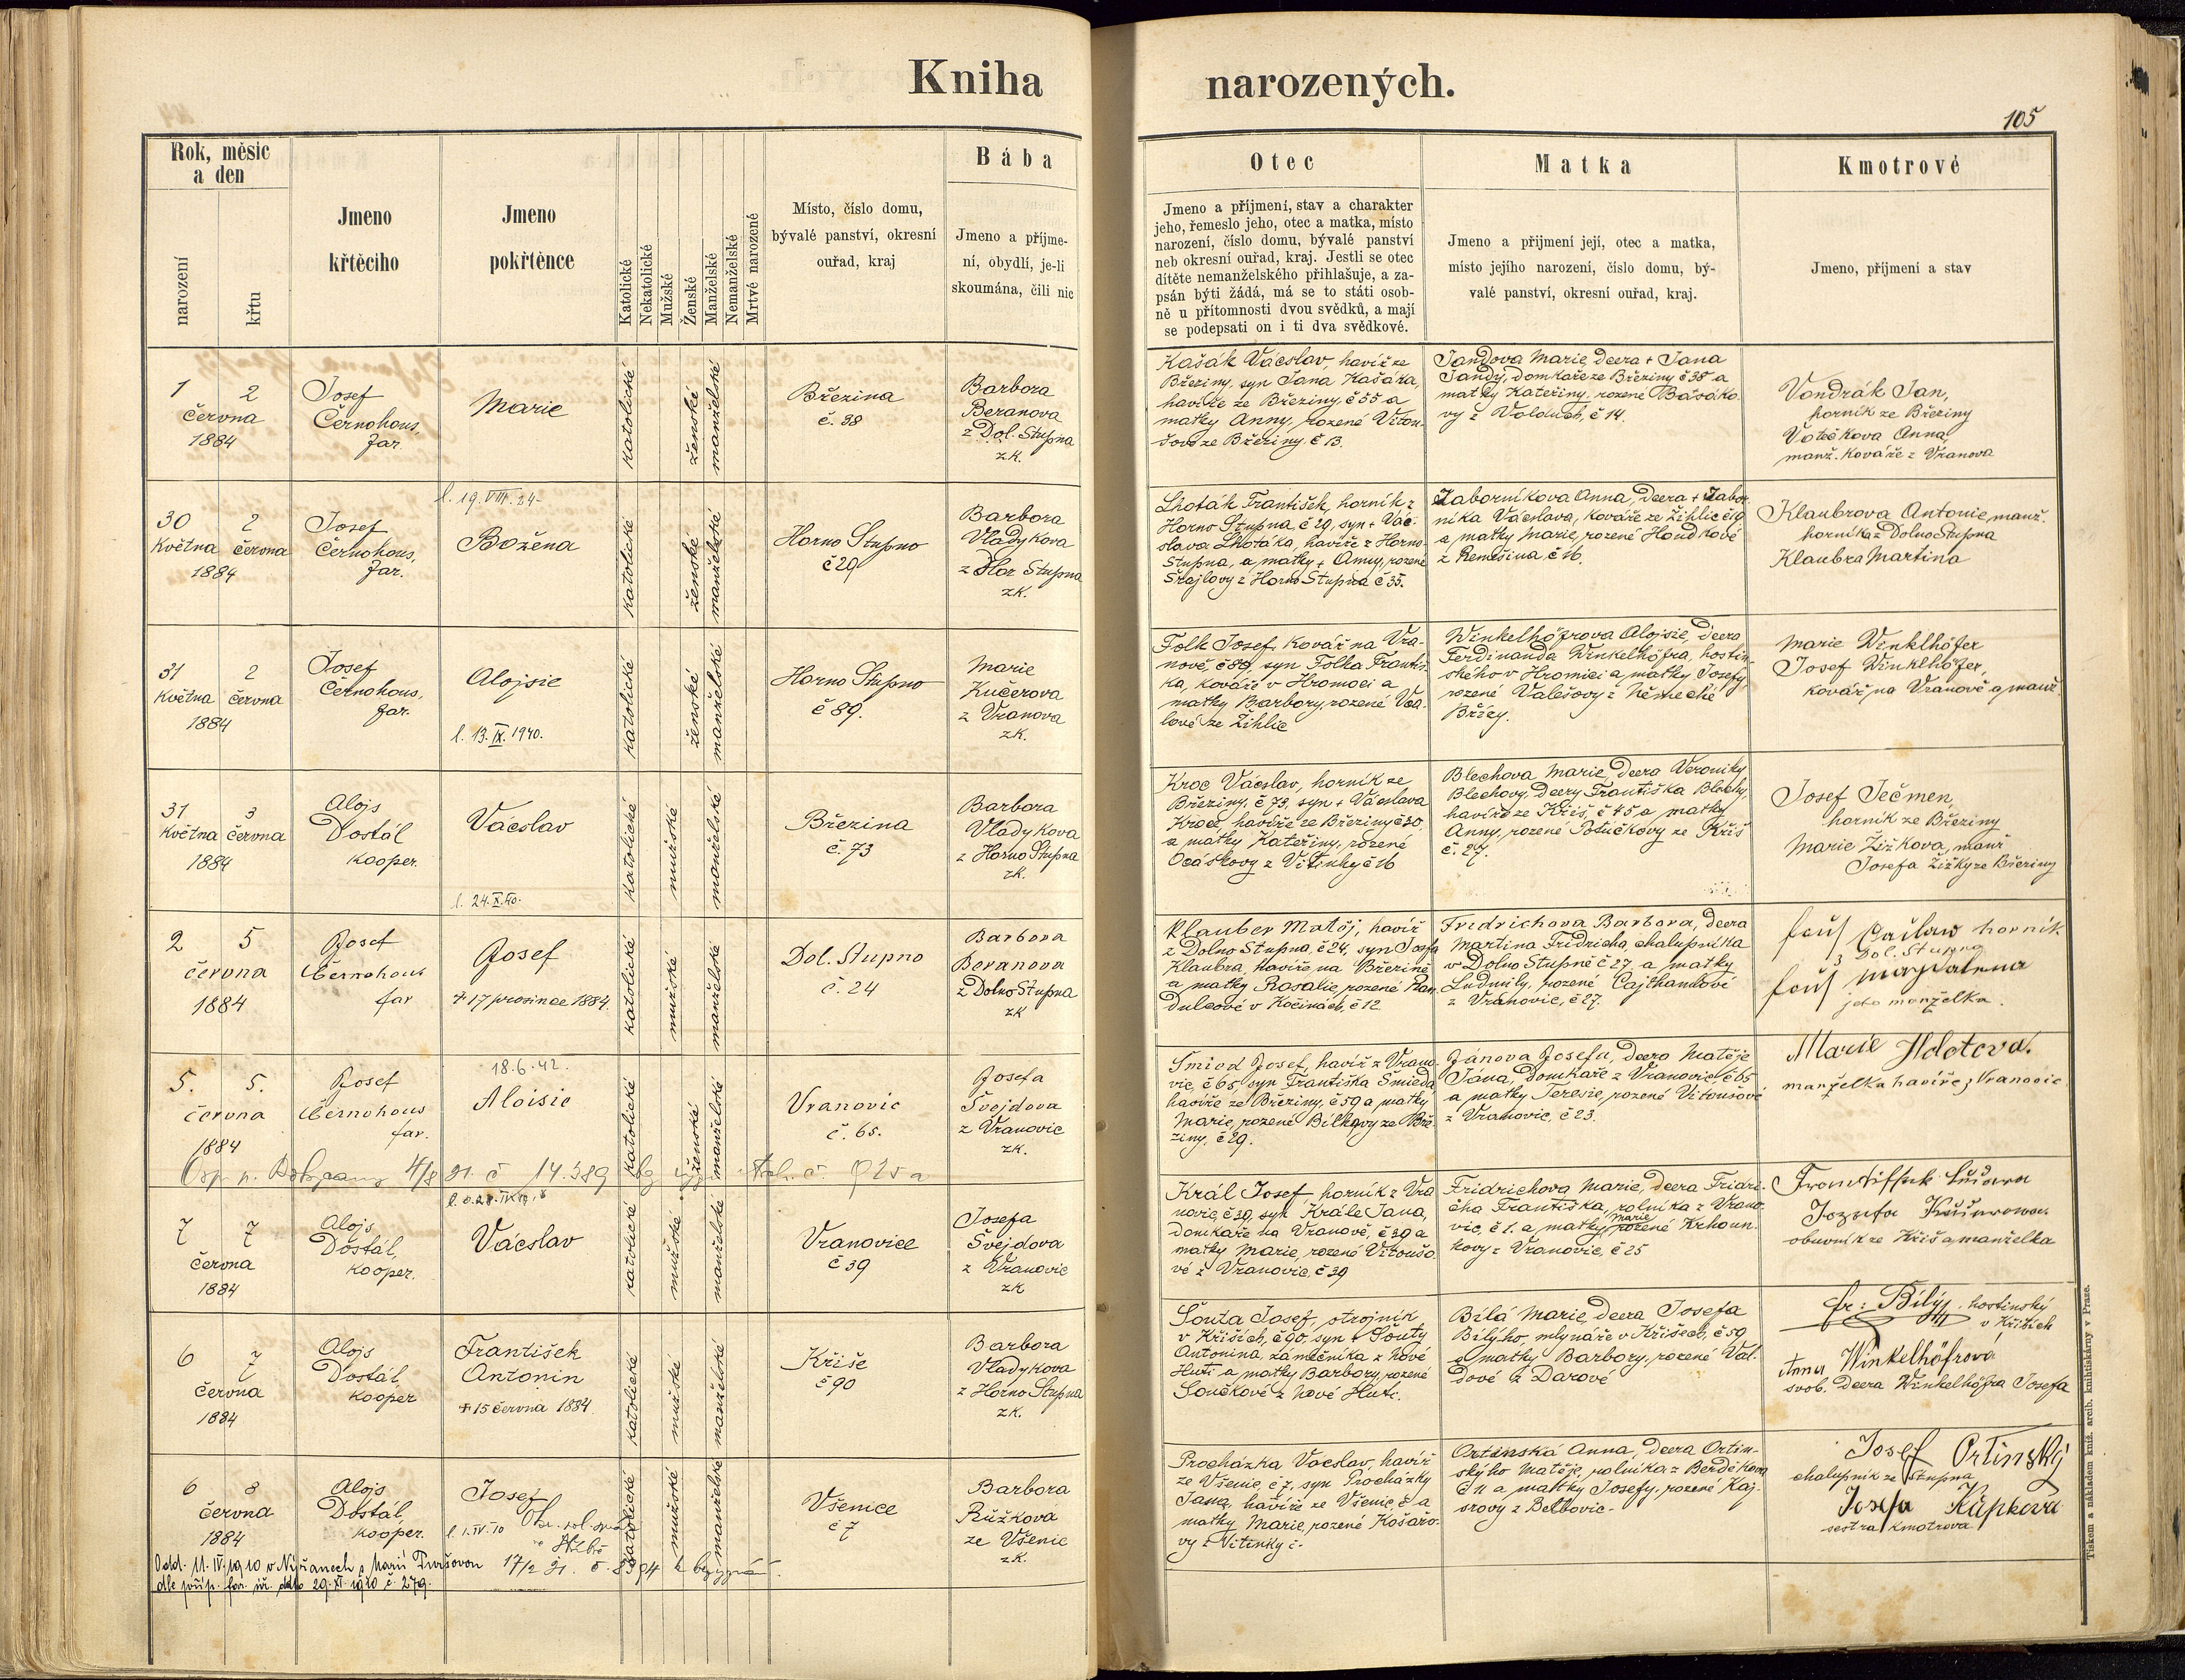 Kniha narozených.
105
Rok, měsíc
a den
narození
křtu
Jmeno
křtěcího
Jmeno
pokřtěnce
Katolické
Nekatolické
Mužské
Ženské
Manželské
Nemanželské
Mrtvé narozené
Místo, číslo domu,
bývalé panství, okresní
ouřad, kraj
Bába
Jmeno a příjme-
ní, obydlí, je-li
skoumána, čili nic
Otec
Jmeno a příjmení, stav a charakter
jeho, řemeslo jeho, otec a matka, místo
narození, číslo domu, bývalé panství
neb okresní ouřad, kraj. Jestli se otec
dítěte nemanželského přihlašuje, a za-
psán býti žádá, má se to státi osob-
ně u přítomnosti dvou svědků, a mají
se podepsati on i ti dva svědkové.
Matka
Jmeno a přijmení její, otec a matka,
místo jejího narození, číslo domu, bý-
valé panství, okresní ouřad, kraj.
Kmotrové
Jmeno, příjmení a stav
1 2
června
1884
Josef
Černohous,
far.
Marie
katolické
ženské
manželské
Březina
č. 38
Barbora
Beranova
z Dol. Stupna
zk.
Kašák Václav, havíř ze
Březiny, syn Jana Kašáka,
havíře ze Březiny, č 55 a
matky Anny, rozené Vitou-
šovy ze Březiny, č 13.
Jandova Marie, dcera + Jana
Jandy, domkáře ze Březiny č 38 a
matky Kateřiny, rozené
vy z č 14.
Vondrák Jan,
horník ze Březiny
Anna,
manž. kováře z Vranova
30 2
května června
1884
Josef
Černohous,
far.
l. 19. VIII. 24-
Božena
katolické
ženské
manželské
Horno Stupno
č 29
Barbora
Vladykova
z Hor Stupna
zk.
Lhoták František, horník z
Horno Stupna č 29, syn + Vác-
slava Lhotáka, havíře z Horno
Stupna, a matky + Anny, rozené
z Horno Stupna č 35.
Záborníkova Anna, dcera + Zábor
níka Václava, kováře ze Žihlic č 19
a matky Marie, rozené Houdkové
z Němešina, č 16.
Klaubrova Antonie, manž.
horníka z Dolno Stupna
Klaubra Martina
31 2
května června
1884
Josef
Černohous,
far.
Alojsie
l. 13. IX. 1940.
katolické
ženské
manželské
Horno Stupno
č 89.
Marie
Kučerova
z Vranova
zk.
Folk Josef, kovář na Vra-
nově, č 89, syn Folka Františ-
ka, kováře v Hromnici a
matky Barbory, rozené
lové ze Žihlic
Winkelhöfrova Alojsie, dcera
Ferdinanda Winkelhöfra, hostin
ského v Hromnici a matky Josefy,
rozené Valešovy z Německé
Břízy.
Marie Winkelhöfer
Josef Winkelhöfer,
kovář na Vranově a manž.
31 3
května června
1884
Alojs
Dostál
kooper.
Václav
l. 24. X. 40.
katolické
mužské
manželské
Březina
č. 73
Barbora
Vladykova
z Horno Stupna
zk.
Kroc Václav, horník ze
Březiny, č 73, syn + Václava
Kroce, havíře ze Březiny č 30
a matky Kateřiny, rozené
Ocáskovy z Vítinky č 16
Blechova Marie, dcera Veroniky
Blechovy, dcery Františka Blechy,
havíře ze Kříš, č 45 a matky
Anny, rozené Potůčkovy ze Kříš
č. 27.
Josef Ječmen,
horník ze Březiny
Marie Žižkova, manž
Josefa Žižky ze Březiny
2 5
června
1884
Josef
Černohous
far
Josef
+ 17 prosince 1884.
katolické
mužské
manželské
Dol. Stupno
č. 24
Barbora
Beranova
z Dolno Stupna
zk
Klauber Matěj, havíř
z Dolno Stupna, č 24, syn Josefa
Klaubra, havíře na Březině
a matky Rosalie, rozené Ran-
dulcové v Kočínách, č 12
Fridrichova Barbora, dcera
Martina Fridricha, chalupníka
v Dolno Stupně č 27 a matky
Ludmily, rozené Cajthamlové
z Vranovic, č 27.
horník
z Dol. Stupna
magdalena
jeho manželka.
5. 5.
června
1884
Josef
Černohous
far.
18.6.42.
Aloisie
katolické
ženské
manželské
Vranovic
č. 65.
Josefa
Švejdova
z Vranovic
zk.
Šmied Josef, havíř z Vrano-
vic, č 65, syn Františka Šmieda
havíře ze Březiny, č 59 a matky
Marie, rozené Bílkovy ze Bře-
ziny, č 29.
Jánova Josefa, dcera Matěje
Jána, domkáře z Vranovic, č 65
a matky Teresie, rozené Vitoušové
z Vranovic, č 23.
Marie
manželka havíře z Vranovic
7 7
června
1884
Alojs
Dostál,
kooper.
Václav
katolické
mužské
manželské
Vranovice
č 39
Josefa
Švejdova
z Vranovic
zk
Král Josef, horník z Vra
novic, č 39, syn Krále Jana,
domkáře na Vranově, č 39 a
matky Marie, rozené Vitoušo-
vé z Vranovic, č 39
Fridrichova Marie, dcera Fridri-
cha Františka, rolníka z Vrano-
vic, č 1. a matky Marie rozené Krhoun-
kovy z Vranovic, č 25
obuvník ze Kříš a manželka
6 7
června
1884
Alojs
Dostál,
kooper
František
Antonín
+ 15 června 1884.
katolické
mužské
manželské
Kříše
č 90
Barbora
Vladykova
z Horno Stupna
zk.
Šouta Josef, strojník
v Kříších, č 90, syn + Šouty
Antonína, zámečníka z Nové
Huti a matky Barbory, rozené
Součkové z Nové Huti.
Bílá Marie, dcera Josefa
Bílýho, mlynáře v Kříších, č 59
a matky Barbory, rozené Val-
dové z Darové
fr: Bílý, hostinský
v Kříších
Anna Winkelhöfrová
svob. dcera Winkelhöfra Josefa
6 8
června
1884
Alojs
Dostál,
kooper.
Josef
l. 1. IV. 10
katolické
mužské
manželské
Všenice
č 7
Barbora
Růžkova
ze Všenic
zk.
Procházka Václav, havíř
ze Všenic, č 7, syn Procházky
Jana, havíře ze Všenic, č a
matky Marie, rozené Košařo-
vy z Vitinky č.
Ortinská Anna, dcera Ortin-
skýho Matěje, rolníka z
č 11 a matky Josefy, rozené Kaj-
srovy z
Josef Ortinský
chalupník ze Stupna
Josefa Kůpkova
sestra kmotrova
Odd. 11. IV. 1910 v Nýřanech s Marií
29. XI. 1910 č. 279.
Tiskem a nákladem kníž. arcib. knihtiskárny v Praze.